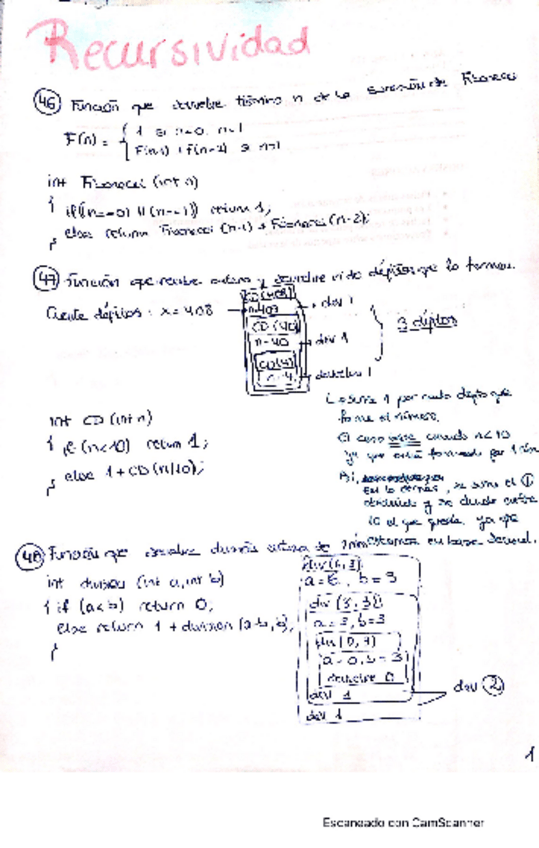 Recursividad
46 Función que devuelve término n de la sucesión de Fibonacci
F(n) = { 1 si n=0, n=1
F(n-1) + F(n-2) si n>1
int Fibonacci (int n)
{ if((n==0) || (n==1)) return 1;
else return Fibonacci (n-1) + Fibonacci (n-2);
}
47 Función que recibe entero y devuelve nº de dígitos que lo forman.
Cuente dígitos: x=408
CD(408)
n=408 → dev 1
CD(40)
n=40 → dev 1
CD(4)
n=4 → devuelve 1
3 dígitos
int CD (int n)
{ if (n<10) return 1;
else 1+CD(n/10);
}
suma 1 por cada dígito que
forme el número.
El caso base cuando n<10
ya que está formado por 1
En lo demás, se suma el 1
obtenido y se divide entre
10 el que queda, ya que
estamos en base decimal.
48 Función que devuelve división entera de
int division (int a, int b)
{ if (a<b) return 0;
else return 1 + division (a-b, b);
}
div(6,3)
a=6, b=3
div (3,3)
a=3, b=3
div (0,3)
a=0, b=3
devuelve 0
dev 1
dev 1
dev 2
1
Escaneado con CamScanner